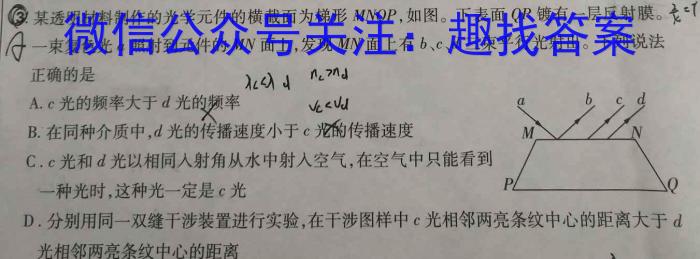 ③ 某透明材料制作的光学元件的横截面为梯形 MNQP,如图。下表面 QP 镀有一层反射膜。
一束复色光 a 照射到元件的 MN 面上,发现 MN 面上有 b、c、d
微信公众号关注:趣找答案
正确的是
λc<λd nc>nd
A. c 光的频率大于 d 光的频率
vc<vd
B. 在同种介质中,d 光的传播速度小于 c 光的传播速度
C. c 光和 d 光以相同入射角从水中射入空气,在空气中只能看到
一种光时,这种光一定是 c 光
D. 分别用同一双缝干涉装置进行实验,在干涉图样中 c 光相邻两亮条纹中心的距离大于 d
光相邻两亮条纹中心的距离
a b c d
M N
P Q